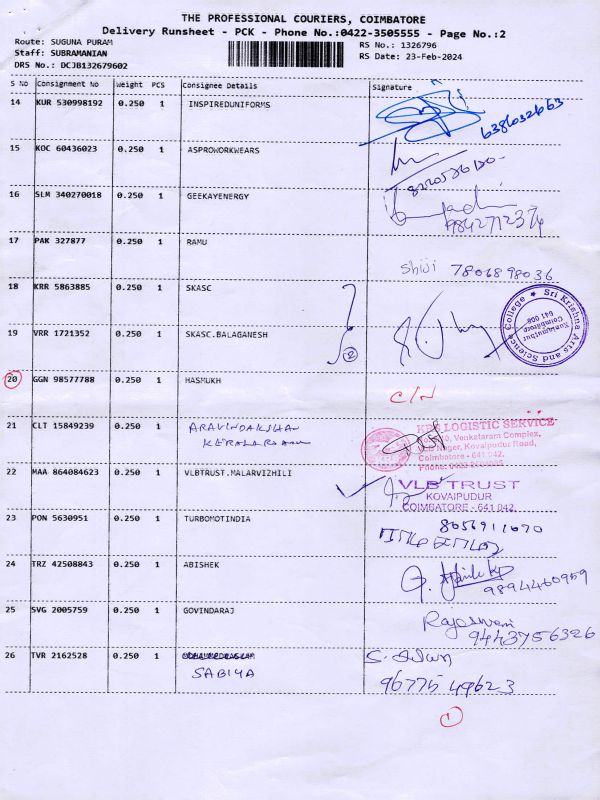 THE PROFESSIONAL COURIERS, COIMBATORE
Delivery Runsheet - PCK - Phone No.:0422-3505555 - Page No.:2
Route: SUGUNA PURAM RS No.: 1326796
Staff: SUBRAMANIAN RS Date: 23-Feb-2024
DRS No.: DCJB132679602
S No Consignment No Weight PCS Consignee Details Signature
14 KUR 530998192 0.250 1 INSPIREDUNIFORMS
15 KOC 60436023 0.250 1 ASPROWORKWEARS
16 SLM 340270018 0.250 1 GEEKAYENERGY
9842712374
17 PAK 327877 0.250 1 RAMU
Shiji 7806898036
18 KRR 5863885 0.250 1 SKASC
Sri Krishna Arts and Science College
Kuniamuthur
Coimbatore
641 008
19 VRR 1721352 0.250 1 SKASC.BALAGANESH
2
20 GGN 98577788 0.250 1 HASMUKH
C/N
21 CLT 15849239 0.250 1 ARAVINDAKSHAN
LOGISTIC SERVICE
Venketaram Complex,
Nager, Kovaipudur Road,
Coimbatore - 641 042.
22 MAA 864084623 0.250 1 VLBTRUST.MALARVIZHILI
VLB TRUST
KOVAIPUDUR
COIMBATORE - 641 042.
23 PON 5630951 0.250 1 TURBOMOTINDIA
8056911070
24 TRZ 42508843 0.250 1 ABISHEK
9894460959
25 SVG 2005759 0.250 1 GOVINDARAJ
Rajeswari
9443756326
26 TVR 2162528 0.250 1
SABIYA
96775 49623
1